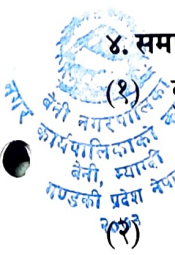 ४. सम
(१)
बेनी नगरपालिका
नगर कार्यपालिकाको
बेनी, म्याग्दी
गण्डकी प्रदेश नेपा
(२)